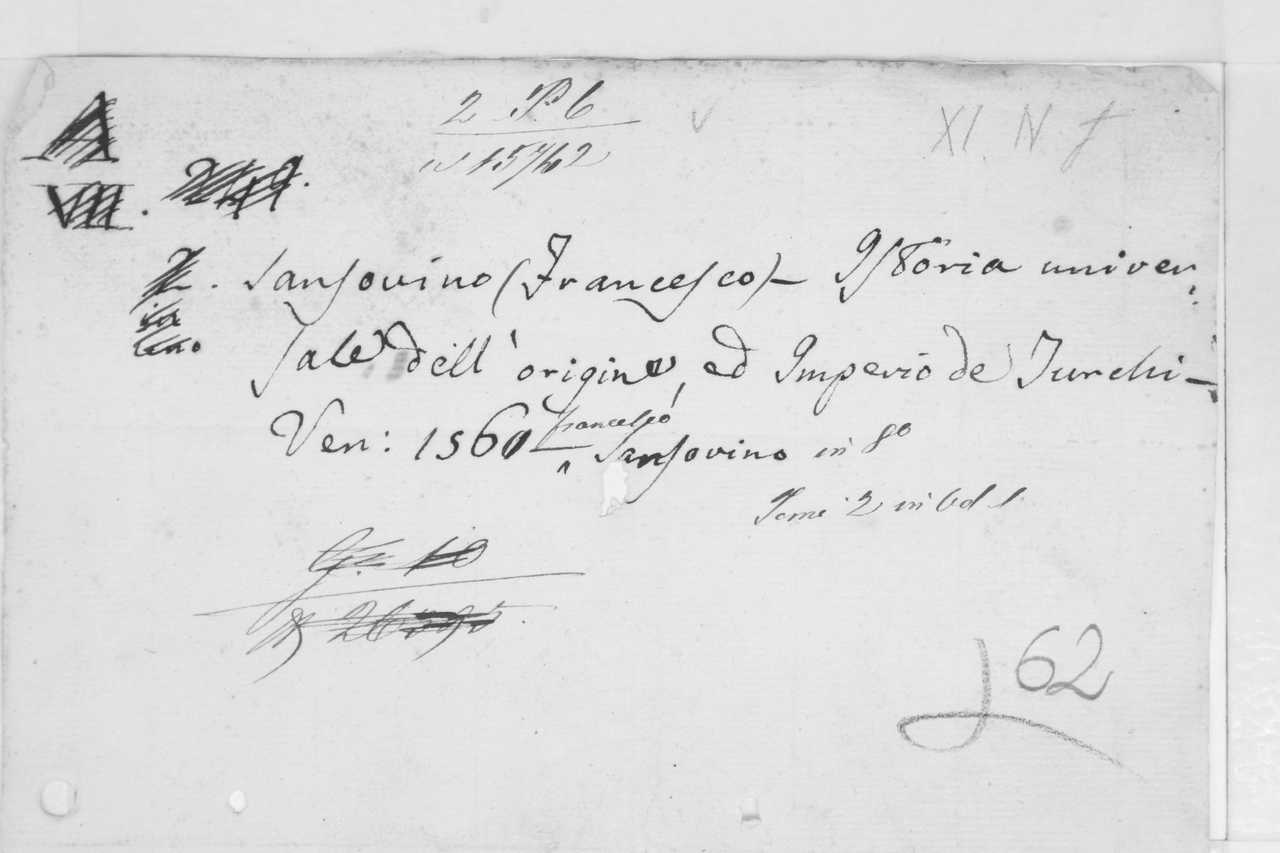 2 P 6
XI. N. f
15742
Sansovino (Francesco) - Istoria univer:
sale dell' origine, ed Imperio de Turchi -
Ven: 1560 francesco
Sansovino in 8o
Tome 2 in
62